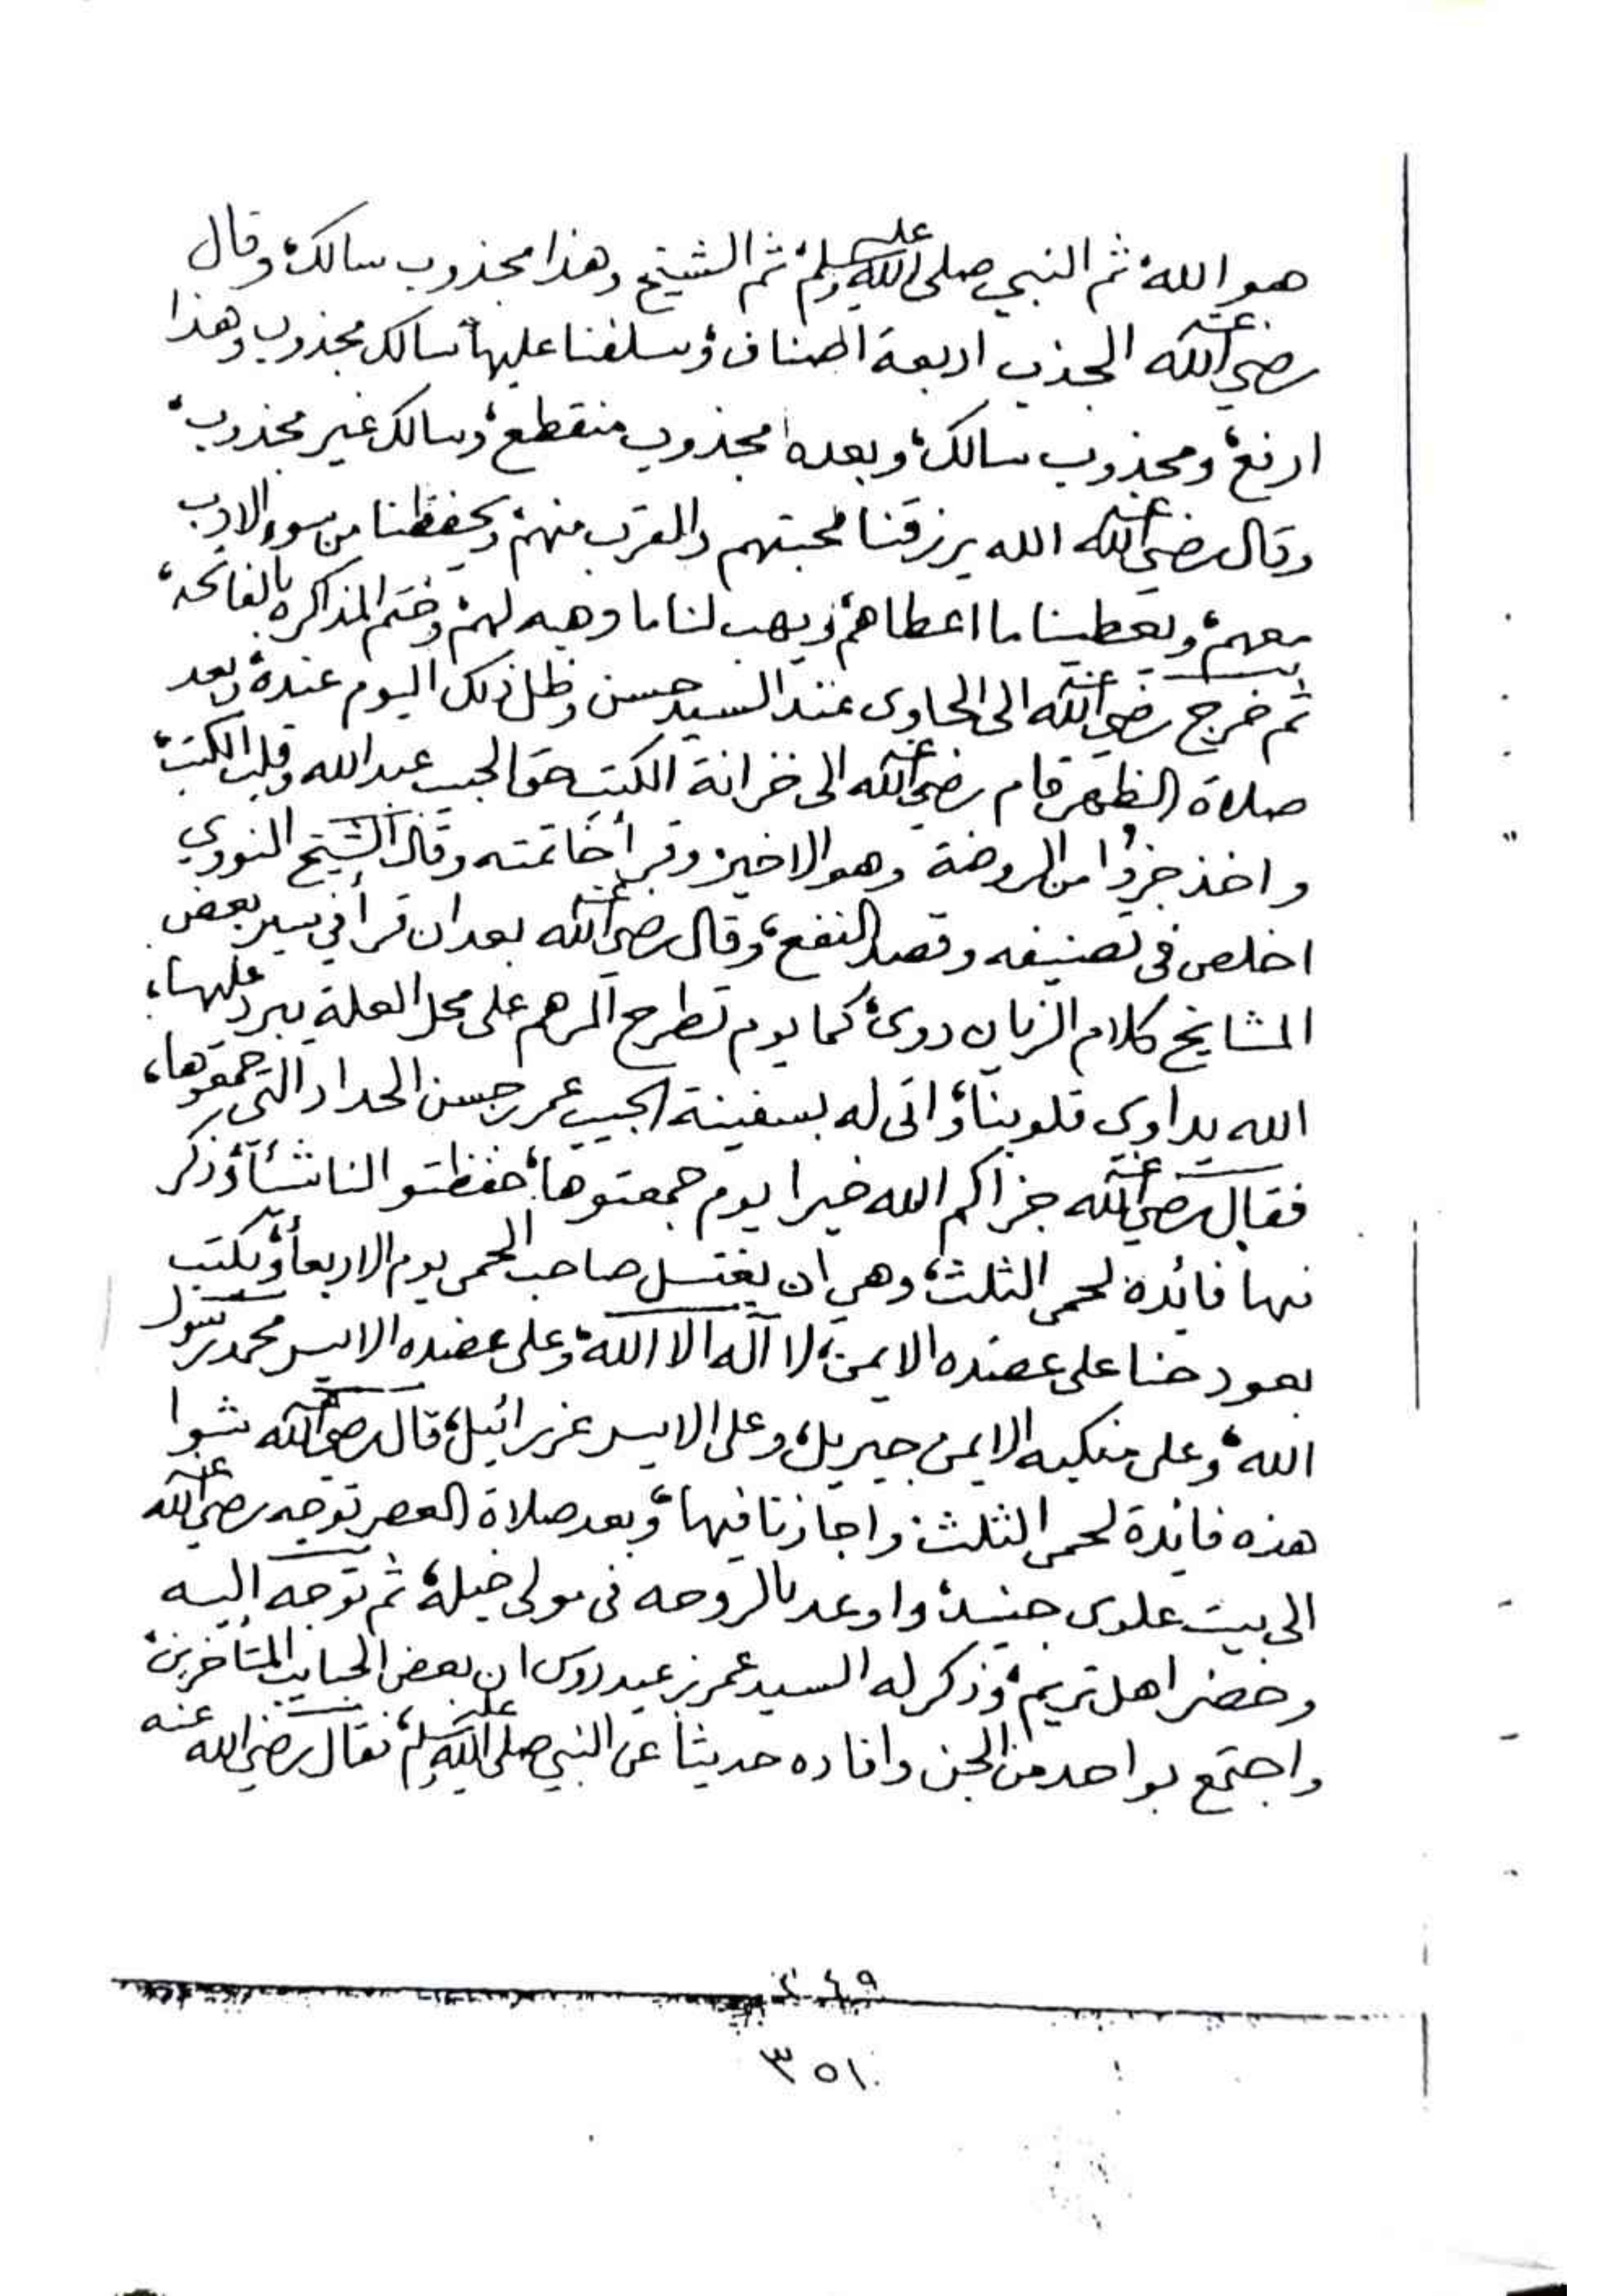 هو الله، ثم النبي صلى الله عليه وسلم، ثم الشيخ وهذا مجذوب سالك، وقال
رضي الله عنه الجذب اربعة اصناف، وسلفنا عليها، سالك مجذوب وهذا
ارفع، ومجذوب سالك، وبعده مجذوب منقطع، وسالك غير مجذوب،
وقال رضي الله عنه الله يرزقنا محبتهم والقرب منهم، ويحفظنا من سوء الادب
معهم، ويعطينا ما اعطاهم، ويهب لنا ما وهبه لهم، وختم المذاكره بالفاتحه،
ثم خرج رضي الله عنه الى الحاوى عند السيد حسن وظل ذلك اليوم عنده، وبعد
صلاة الظهر قام رضي الله عنه الى خزانة الكتب حق الحبيب عبد الله وقلب الكتب،
واخذ جزؤا من الروضة وهو الاخير وقرأ خاتمته وقال الشيخ النووي
اخلص فى تصنيفه وقصد النفع، وقال رضي الله عنه بعد ان قرأ في سير بعض
المشايخ كلام الزيان دوى، كما يوم تطرح المرهم على محل العلة يبرد عليها،
الله يداوى قلوبنا، واتى له بسفينة الحبيب عمر بن حسن الحداد التي جمعوها،
فقال رضي الله عنه جزاكم الله خيرا يوم جمعتوها، حفظتو النا شئاً، وذكر
فيها فائدة لحمى الثلث، وهي ان يغتسل صاحب الحمى يوم الاربعاء، ويكتب
بعود حنا على عضده الايمن، لا آله الا الله، وعلى عضده الايسر محمد رسول
الله، وعلى منكبه الايمن جبريل، وعلى الايسر عزرائيل، قال رضي الله عنه شوا
هذه فائدة لحمى الثلث واجازنا فيها، وبعد صلاة العصر توجه رضي الله عنه
الى بيت علوى جنيد، واوعد بالروحه فى مولى خيله، ثم توجه اليه
وحضر اهل تريم، وذكر له السيد عمر بن عيدروس ان بعض الحبايب المتأخرين،
واجتمع بواحد من الجن وافاده حديثا عن النبي صلى الله عليه وسلم، فقال رضي الله عنه
٣٤٩
٣٥١